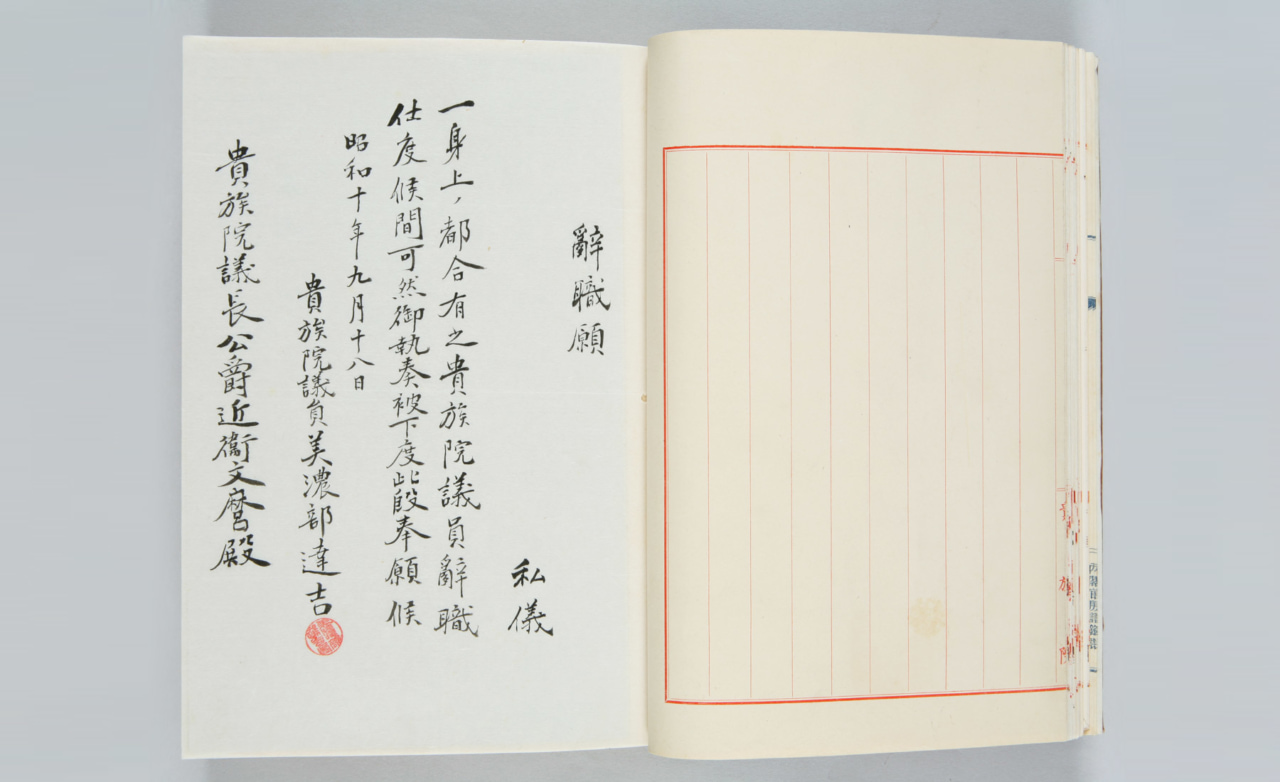 辭職願
私儀
一身上ノ都合有之貴族院議員辭職
仕度候間可然御執奏被下度此段奉願候
昭和十年九月十八日
貴族院議員美濃部達吉
貴族院議長公爵近衞文麿殿